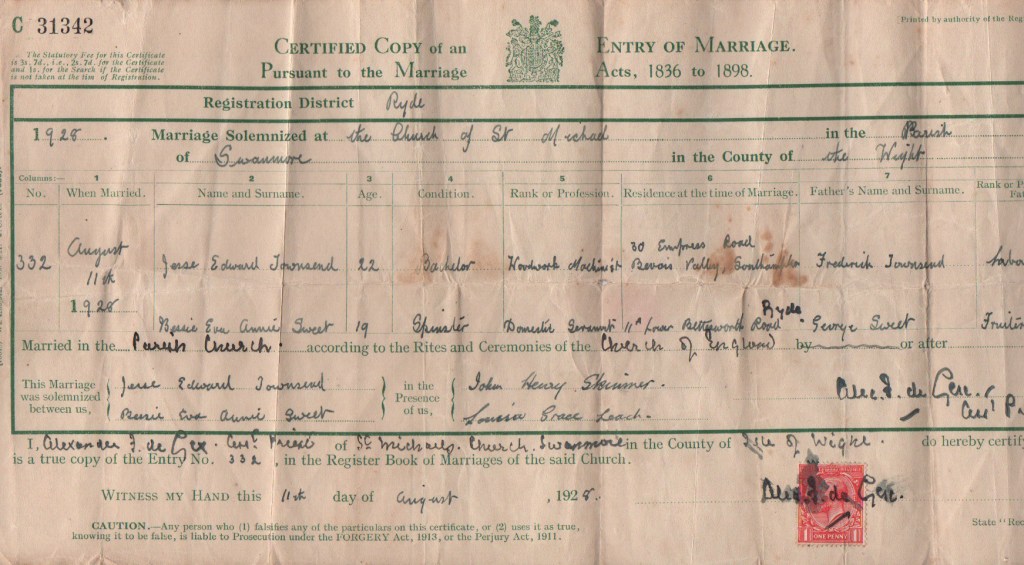 C 31342
Printed by authority of the Reg
The Statutory Fee for this Certificate
is 2s. 7d., i.e., 2s. 7d. for the Certificate
and 1s. for the Search if the Certificate
is not taken at the tim of Registration.
CERTIFIED COPY of an ENTRY OF MARRIAGE.
Pursuant to the Marriage Acts, 1836 to 1898.
Registration District Ryde
1928. Marriage Solemnized at the Church of St Michael in the Parish
of Swanmore in the County of the Wight
Columns:— 1 2 3 4 5 6 7
No. When Married. Name and Surname. Age. Condition. Rank or Profession. Residence at the time of Marriage. Father's Name and Surname. Rank or P
Fat
332 August 11th 1928 Jesse Edward Townsend 22 Bachelor Woodwork Machinist 30 Empress Road Bevois Valley, Southampton Frederick Townsend Labo
Bessie Eva Annie Sweet 19 Spinster Domestic Servant 11A Lower Bettesworth Road Ryde George Sweet Fruiter
Married in the Parish Church. according to the Rites and Ceremonies of the Church of England by or after
This Marriage was solemnized between us,
Jesse Edward Townsend
Bessie Eva Annie Sweet
in the Presence of us,
John Henry Skinner.
Louisa Grace Leach.
Alex. F. de Gex.
Asst P
I, Alexander F. de Gex. Asst. Priest of St. Michael's Church. Swanmore in the County of Isle of Wight. do hereby certify
is a true copy of the Entry No. 332, in the Register Book of Marriages of the said Church.
WITNESS MY HAND this 11th day of August, 1928.
Alex. F. de Gex.
CAUTION.—Any person who (1) falsifies any of the particulars on this certificate, or (2) uses it as true,
knowing it to be false, is liable to Prosecution under the FORGERY Act, 1913, or the Perjury Act, 1911.
1 ONE PENNY 1
State "Rec